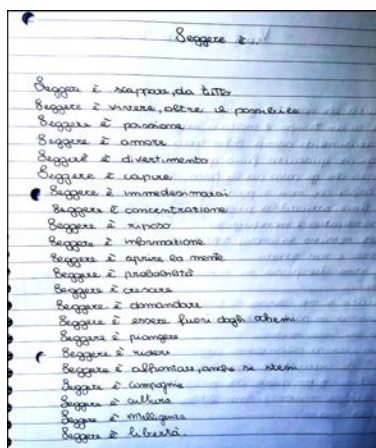 Leggere è...
Leggere è scappare, da tutto
Leggere è vivere, oltre il possibile
Leggere è passione
Leggere è amore
Leggere è divertimento
Leggere è capire
Leggere è immedesimarsi
Leggere è concentrazione
Leggere è riposo
Leggere è informazione
Leggere è aprire la mente
Leggere è probabilità
Leggere è crescere
Leggere è domandare
Leggere è essere fuori dagli schemi
Leggere è piangere
Leggere è ridere
Leggere è affrontare, anche se stessi
Leggere è compagnia
Leggere è cultura
Leggere è intelligenza
Leggere è libertà.